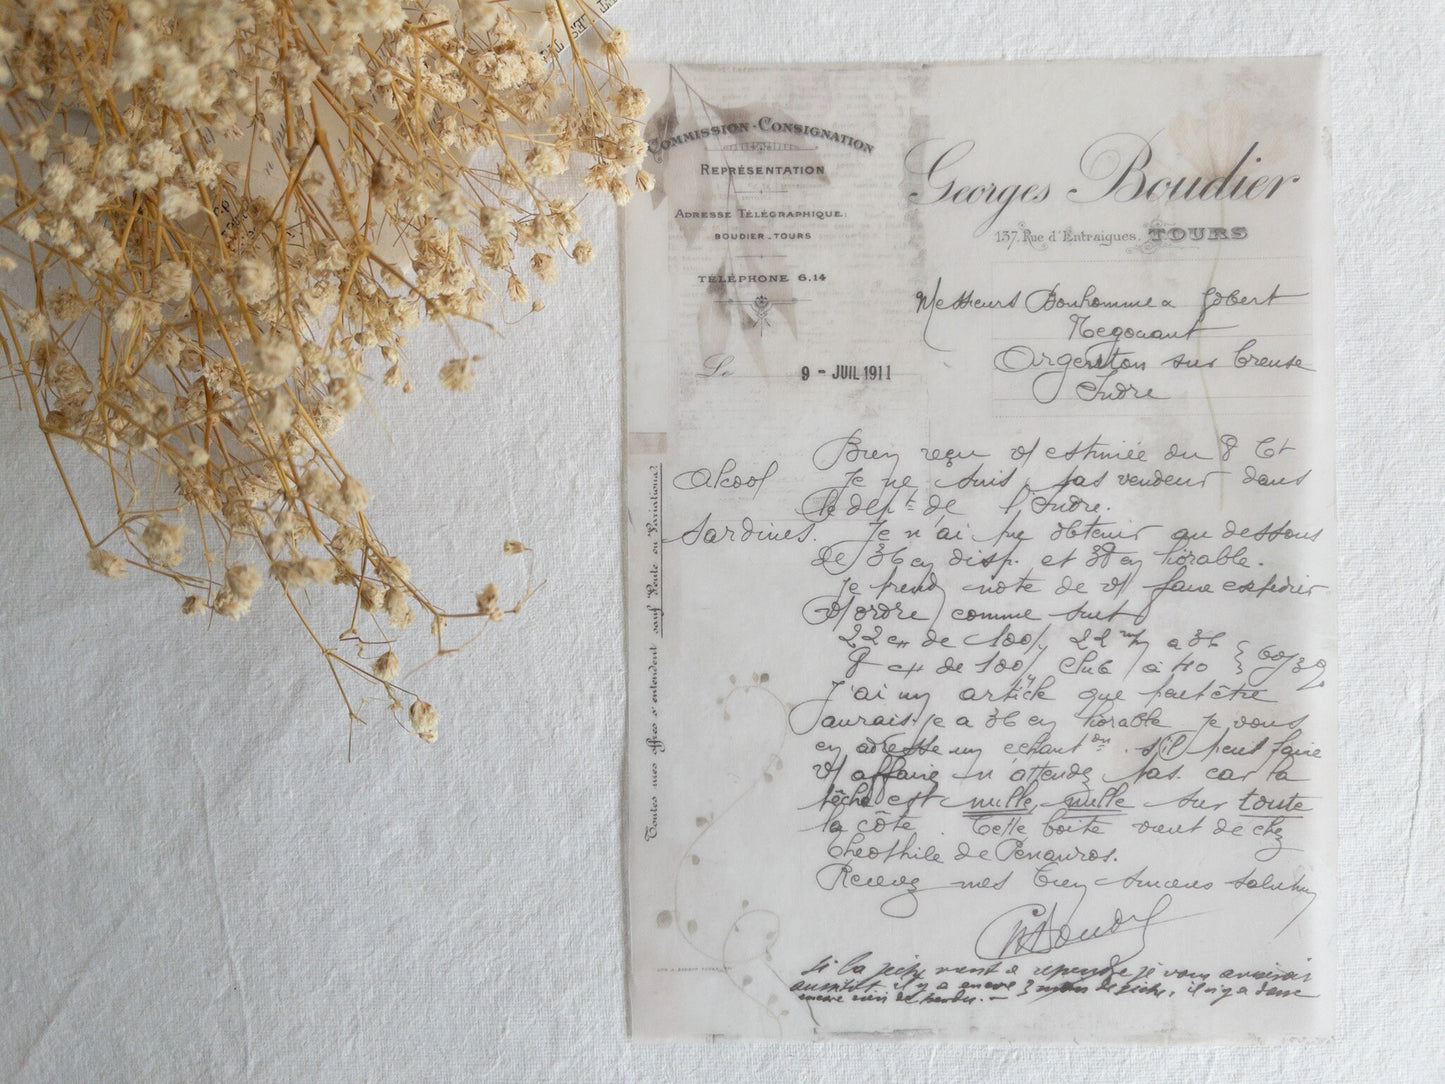 COMMISSION-CONSIGNATION
REPRÉSENTATION
ADRESSE TÉLÉGRAPHIQUE:
BOUDIER_TOURS
TÉLÉPHONE 6.14
Georges Boudier
137, Rue d'Entraigues, TOURS
Messieurs Bonhomme & Jobert
Negociant
Argenton sur Creuse
Indre
Le 9 - JUIL 1911
Toutes mes offres s'entendent sauf Vente ou Variations?
Bien reçu v/ estimée du 8 Ct
Alcool Je ne suis pas vendeur dans
le dept de l'Indre.
Sardines. Je n'ai pu obtenir au dessous
de 36 en disp. et 38 en horable.
Je prends note de v/ faire expédier
v/ordre comme suit
22 c/ de 100/ 22 m/ a 36
8 c/ de 100/ club a 40
J'ai un article que peut être
aurais-je a 36 en horable Je vous
en adresse un echanton. s'il peut faire
v/ affaire n'attendez pas car la
pêche est nulle, nulle sur toute
la côte. Cette boite vient de chez
Théophile de Penanros.
Recevez mes bien sinceres salutations
Si la pêche vient a reprendre je vous aviserai
aussitôt il y a encore 3 mois de pêche, il n'y a donc
encore rien de perdu. -